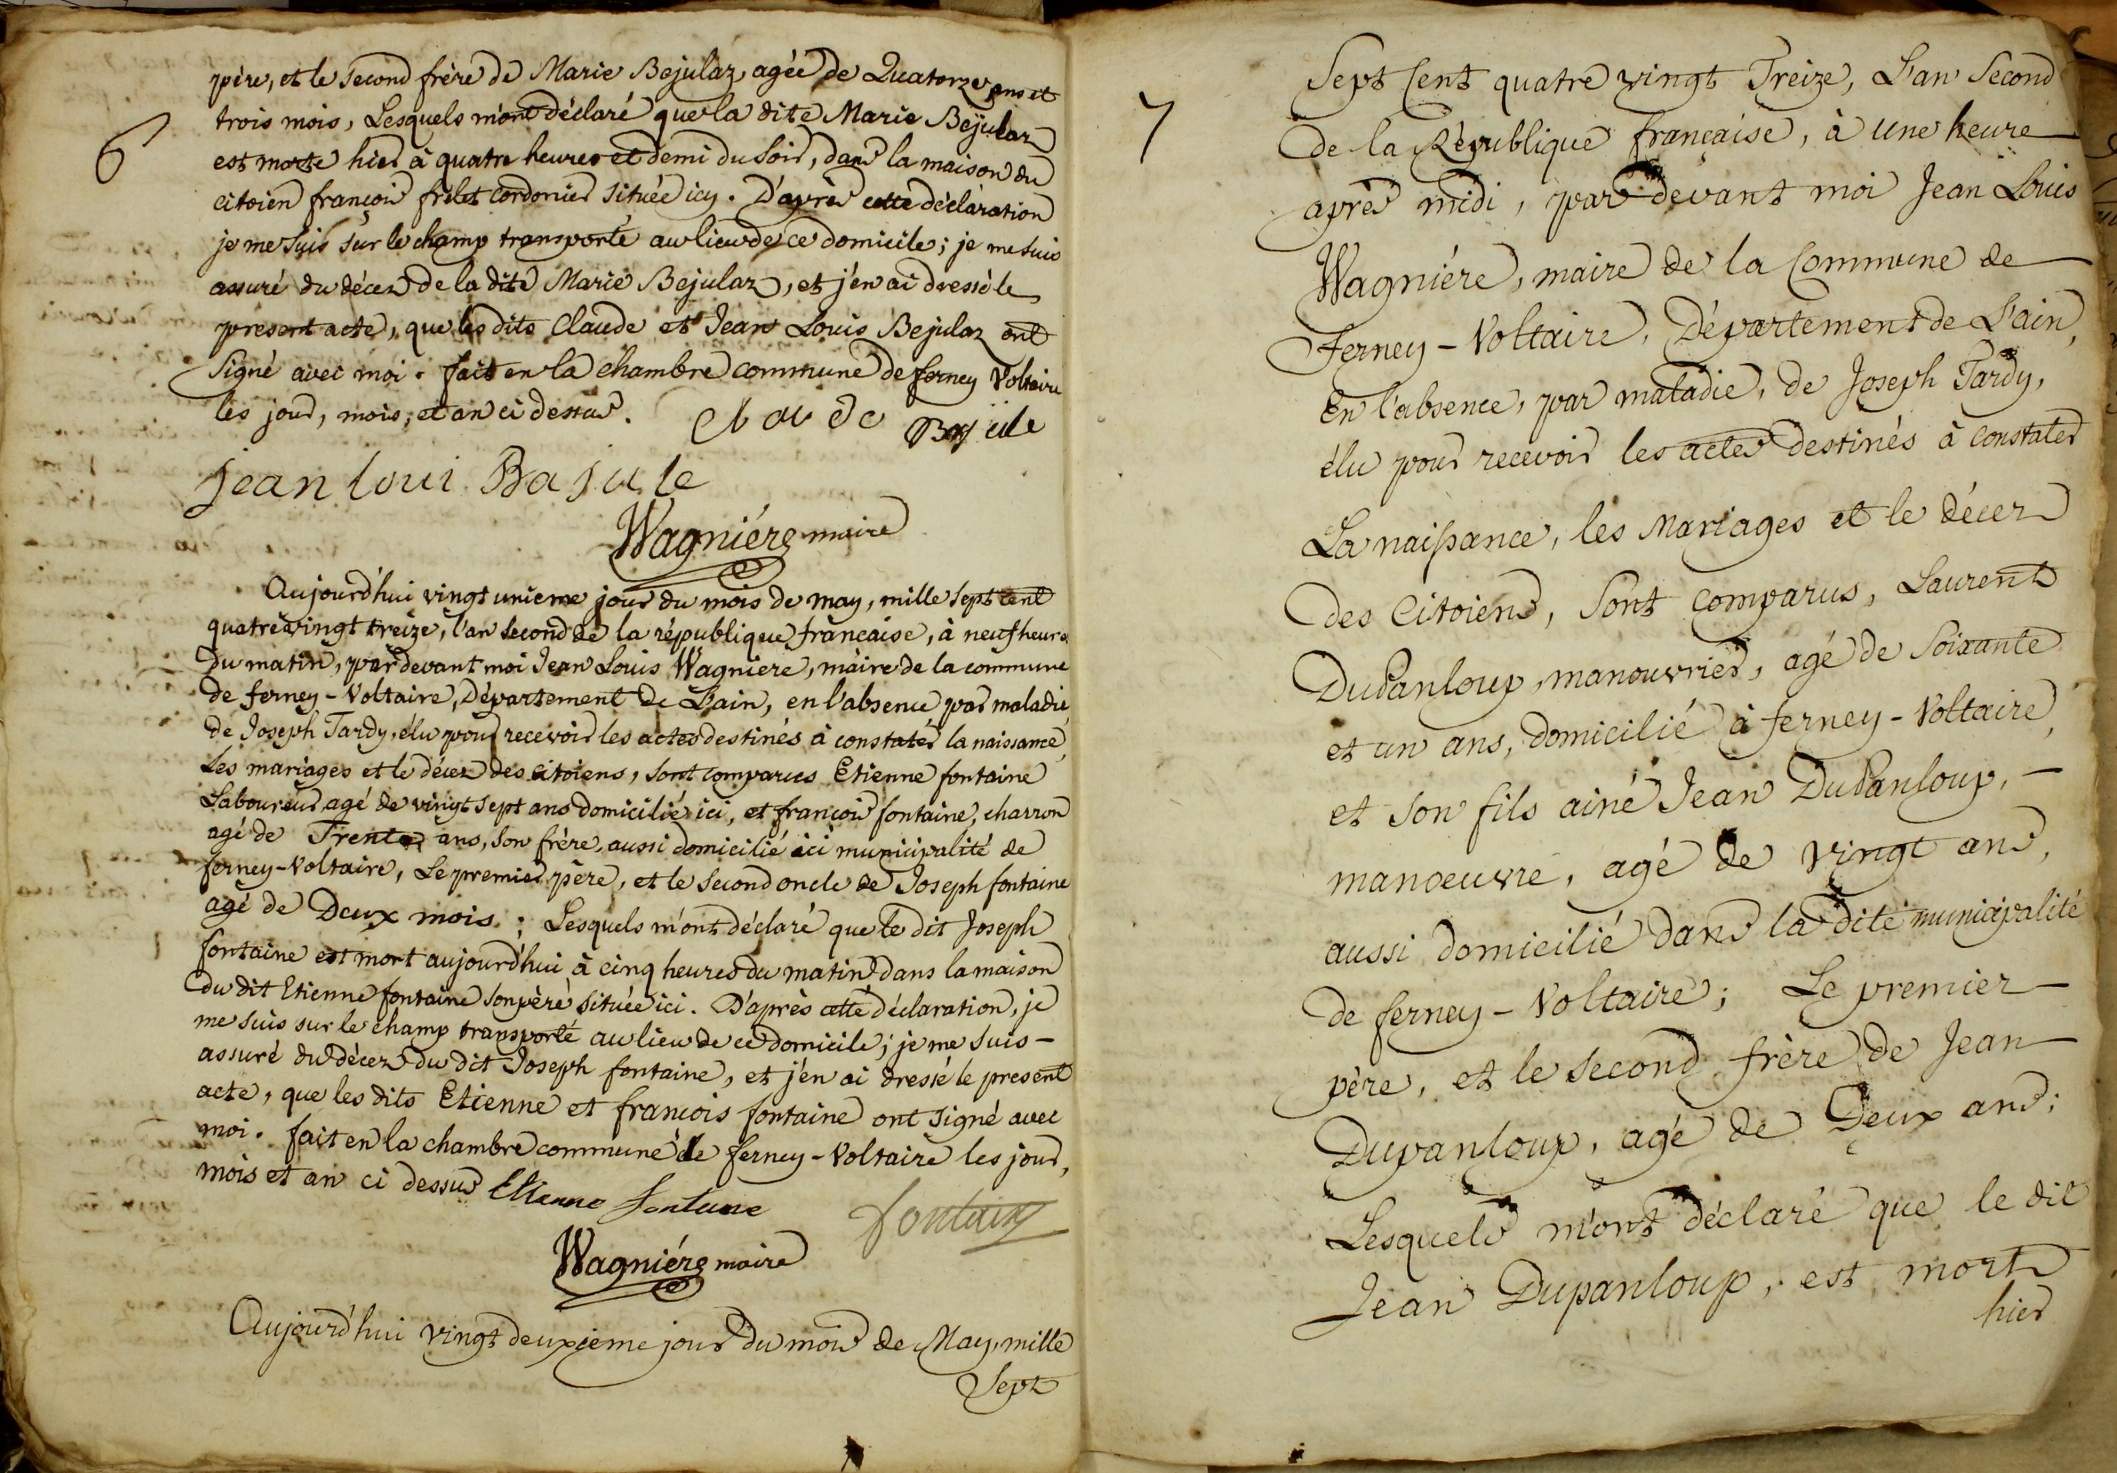 6
père, et le second frère de Marie Bejulaz, agée de Quatorze ans et
trois mois, Lesquels m'ont déclaré que la dite Marie Bejulaz
est morte hier à quatre heures et demi du soir, dans la maison du
citoien françois frilet cordonier située icy. D'après cette déclaration
je me suis sur le champ transporté au lieu de ce domicile; je me suis
assuré du décez de la dite Marie Bejulaz, et j'en ai dressé le
present acte, que les dits Claude et Jean Louis Bejulaz ont
Signé avec moi. fait en la chambre commune de ferney Voltaire
les jour, mois, et an ci dessus. Claude Bajule
jean loui Bajule
Wagniére maire
Aujourd'hui vingt unieme jour du mois de may, mille sept cent
quatre vingt treize, l'an second de la république francaise, à neuf heures
du matin, par devant moi Jean Louis Wagniere, maire de la commune
de ferney-Voltaire, Département de L'ain, en l'absence par maladie
de Joseph Tardy, élu pour recevoir les actes destinés à constater la naissance,
Les mariages et le décez des citoiens, sont comparus Etienne fontaine
Laboureur agé de vingt sept ans domicilié ici, et françois fontaine, charron
agé de Trente ans, son frère, aussi domicilié ici municipalité de
ferney-Voltaire, Le premier père, et le second oncle de Joseph fontaine
agé de Deux mois; Lesquels m'ont déclaré que le dit Joseph
fontaine est mort aujourd'hui à cinq heures du matin dans la maison
du dit Etienne fontaine son père située ici. D'après cette déclaration, je
me suis sur le champ transporté au lieu de ce domicile; je me suis -
assuré du décez du dit Joseph fontaine, et j'en ai dressé le present
acte, que les dits Etienne et francois fontaine ont signé avec
moi. fait en la chambre commune de ferney-Voltaire les jour,
mois et an ci dessus Etienne fontaine
fontaine
Wagniére maire
Aujourd'hui vingt deuxieme jour du mois de May, mille
Sept
7
Sept Cent quatre vingt Treize, L'an Second
de la République francaise, à une heure
après midi, par devant moi Jean Louis
Wagniére, maire de la Commune de
Ferney-Voltaire, Département de L'ain,
En l'absence, par maladie, de Joseph Tardy,
élu pour recevoir les actes destinés à constater
La naissance, les Mariages et le décez
des Citoiens, Sont comparus, Laurent
DuPanloup, manouvrier, agé de Soixante
et un ans, domicilié à ferney-Voltaire,
et son fils ainé Jean DuPanloup, -
manoeuvre, agé de vingt ans,
aussi domicilié dans la dite municipalité
de ferney-Voltaire; Le premier
père, et le second frère de Jean
Dupanloup, agé de Deux ans;
Lesquels m'ont déclaré que le dit
Jean Dupanloup, est mort
hier